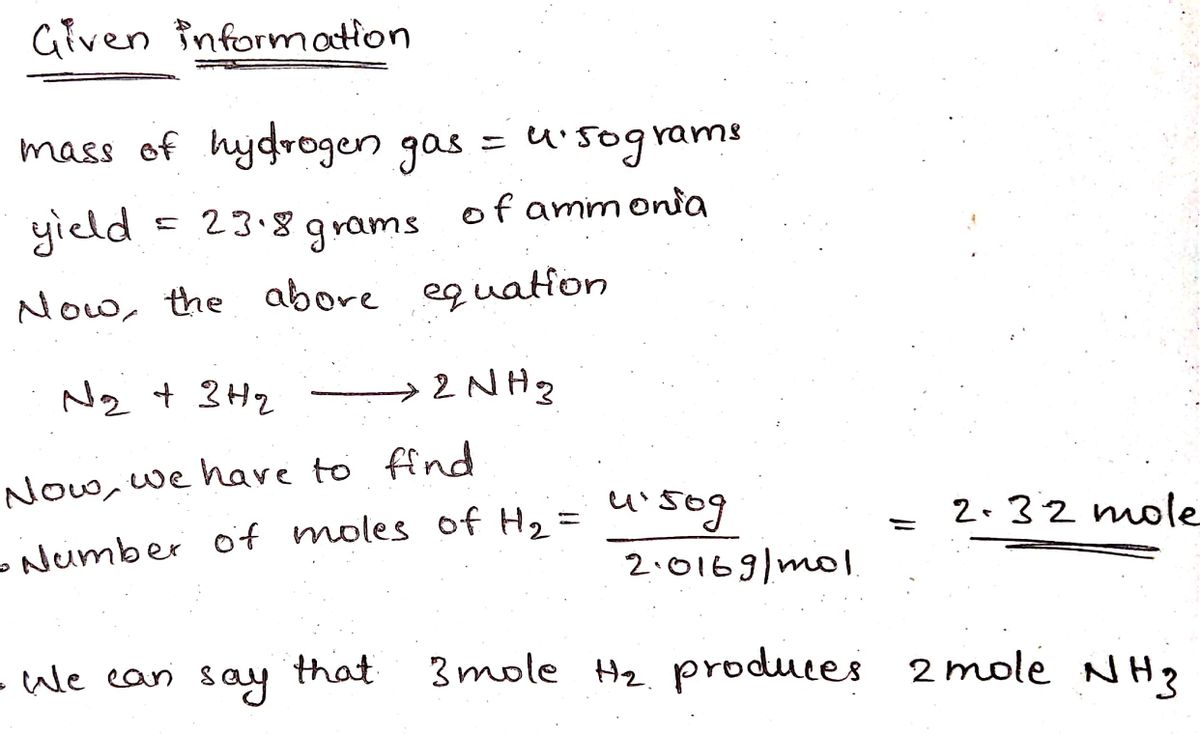 Given information
mass of hydrogen gas = 4.50grams
yield = 23.8 grams of ammonia
Now, the above equation
N2 + 3H2 ⟶ 2NH3
Now, we have to find
Number of moles of H2 = 4.50g / 2.016g/mol = 2.32 mole
We can say that 3mole H2 produces 2mole NH3